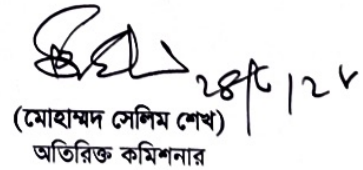 (মোহাম্মদ সেলিম শেখ)
অতিরিক্ত কমিশনার